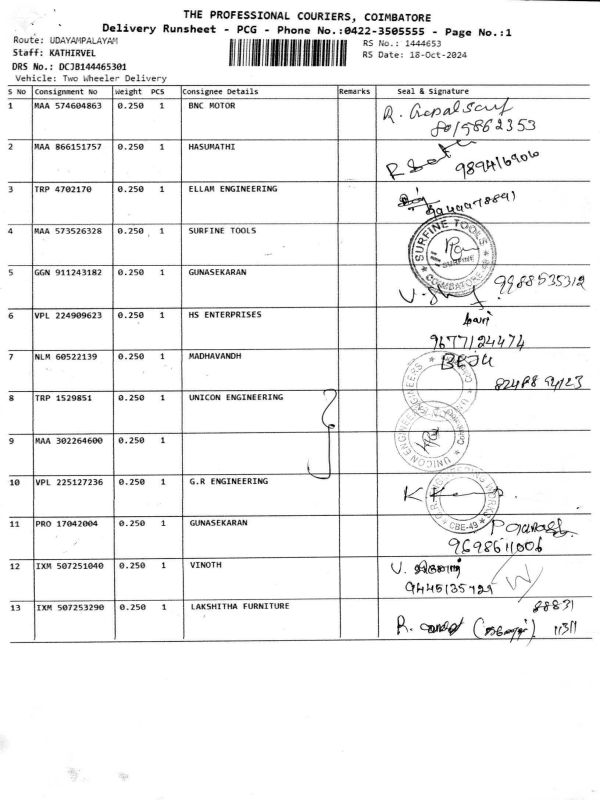 THE PROFESSIONAL COURIERS, COIMBATORE
Delivery Runsheet - PCG - Phone No.:0422-3505555 - Page No.:1
Route: UDAYAMPALAYAM
RS No.: 1444653
Staff: KATHIRVEL
RS Date: 18-Oct-2024
DRS No.: DCJB144465301
Vehicle: Two Wheeler Delivery
S No Consignment No Weight PCS Consignee Details Remarks Seal & Signature
1 MAA 574604863 0.250 1 BNC MOTOR
8015862353
2 MAA 866151757 0.250 1 HASUMATHI
3 TRP 4702170 0.250 1 ELLAM ENGINEERING
4 MAA 573526328 0.250 1 SURFINE TOOLS
SURFINE TOOLS
SURFINE
COIMBATORE
5 GGN 911243182 0.250 1 GUNASEKARAN
9988535312
6 VPL 224909623 0.250 1 HS ENTERPRISES
9677124474
7 NLM 60522139 0.250 1 MADHAVANDH
8 TRP 1529851 UNICON ENGINEERING
0.250 1
9 MAA 302264600 0.250 1
UNICON ENGINEERS
10 VPL 225127236 0.250 1 G.R ENGINEERING
CBE-49
11 PRO 17042004 0.250 1 GUNASEKARAN
9698611006
12 IXM 507251040 0.250 1 VINOTH
13 IXM 507253290 0.250 1 LAKSHITHA FURNITURE
88831
11311